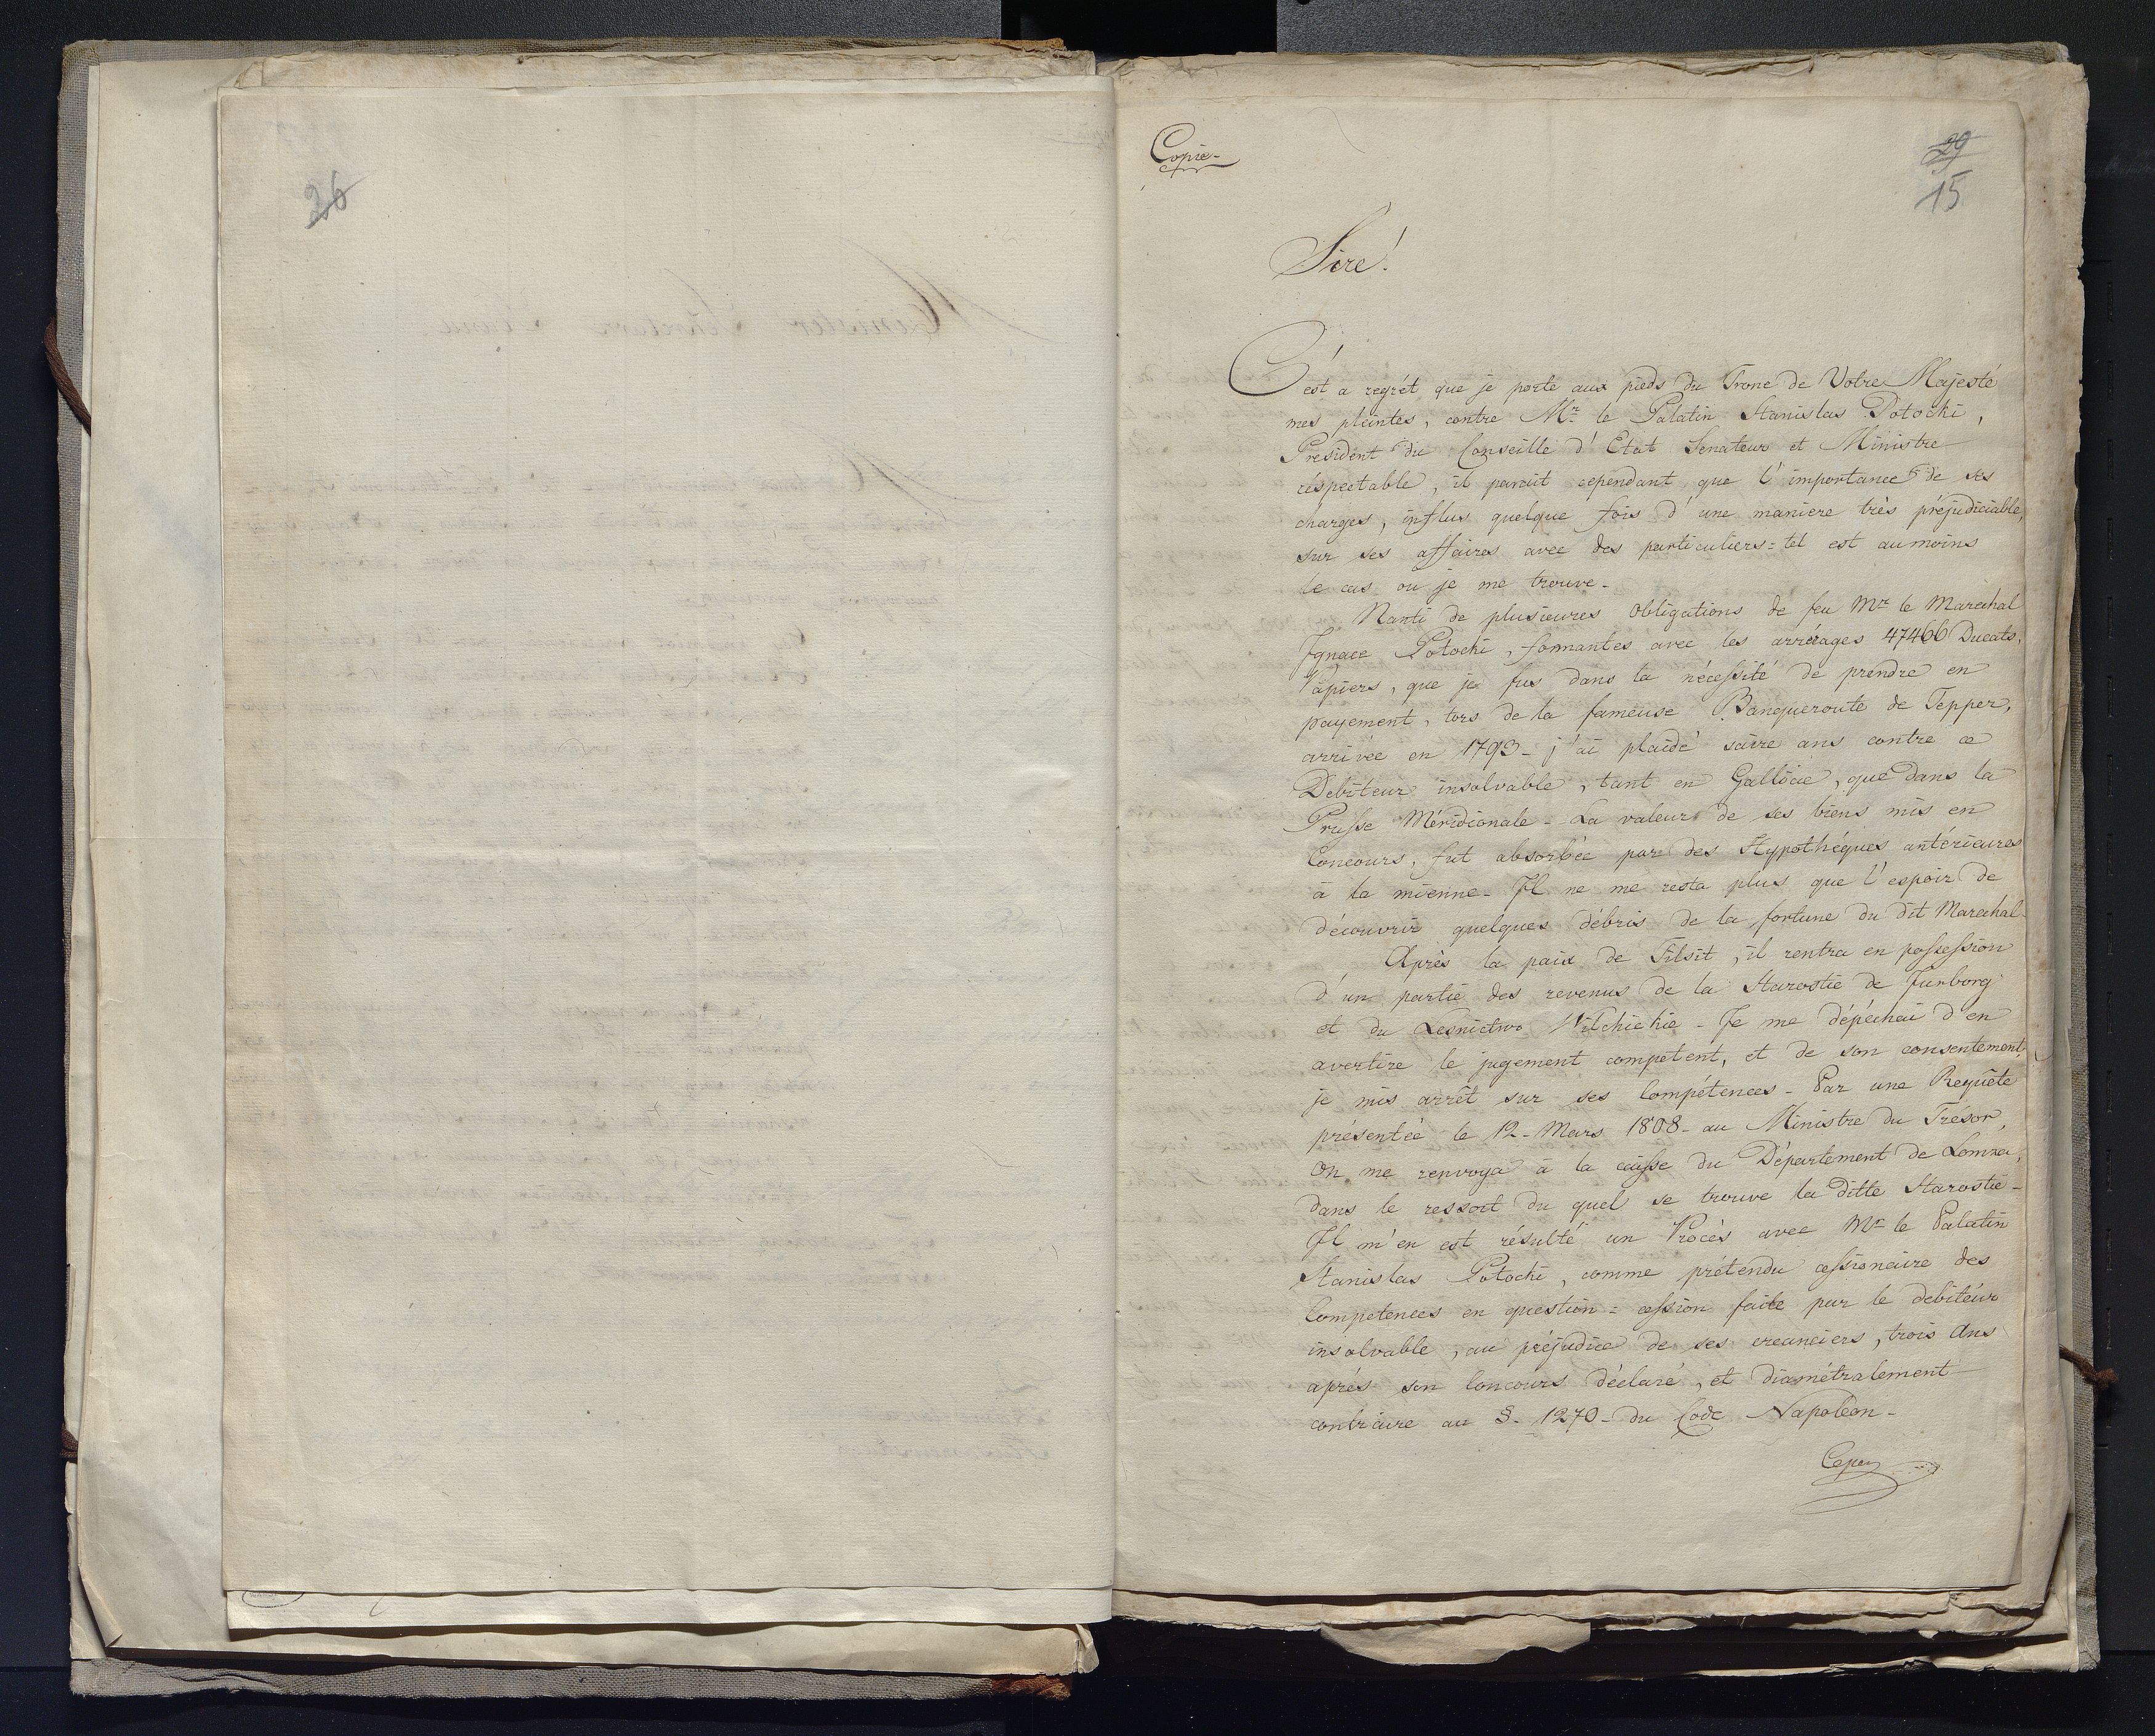 26
Copie-
29
15
Sire!
C'est a regrét que je porte aux pieds du Trone de Votre Majesté
mes plaintes, contre Mr le Palatin Stanislas Potocki,
President du Conseille d'Etat Senateur et Ministre
réspectable, il parait cependant que l'importance de ses
charges, influe quelque fois d'une maniere très préjudiciable,
sur ses affaires avec des particuliers = tel est aumoins
le cas où je me trouve-
Nanti de plusieures Obligations de feu Mr le Marechal
Ignace Potocki, formantes avec les arrérages 47466 Ducats,
Papiers, que je fus dans la nécessité de prendre en
payement, lors de la fameuse Banqueroute de Tepper,
arrivée en 1793- j'ai plaidé saize ans contre ce
Debiteur insolvable, tant en Gallicie, que dans la
Prusse Méridionale- La valeur de ses biens mis en
Concours, fut absorbée par des Hypothéques antérieures
à la mienne- Il ne me resta plus que l'espoir de
découvrir quelques débris de la fortune du dit Marechal-
Après la paix de Tilsit, il rentra en possession
d'un partie des revenus de la Starostie de Jurborg
et du Lesnictwo Wilchickie- Je me dépéchai d'en
avertire le jugement competent, et de son consentement,
je mis arrêt sur ses Compétences- Par une Requête
présentée le 12- Mars 1808- au Ministre du Trésor,
On me renvoya à la caisse du Département de Lomza,
dans le ressort du quel se trouve la ditte Starostie-
Il m'en est résulté un Procès avec Mr le Palatin
Stanislas Potocki, comme prétendu cessionaire des
Competences en question = cession faite par le debiteur
insolvable, au préjudice de ses creanciers, trois Ans
aprés son Concours déclaré, et diamétralement
contraire au §- 1270- du Code Napoléon-